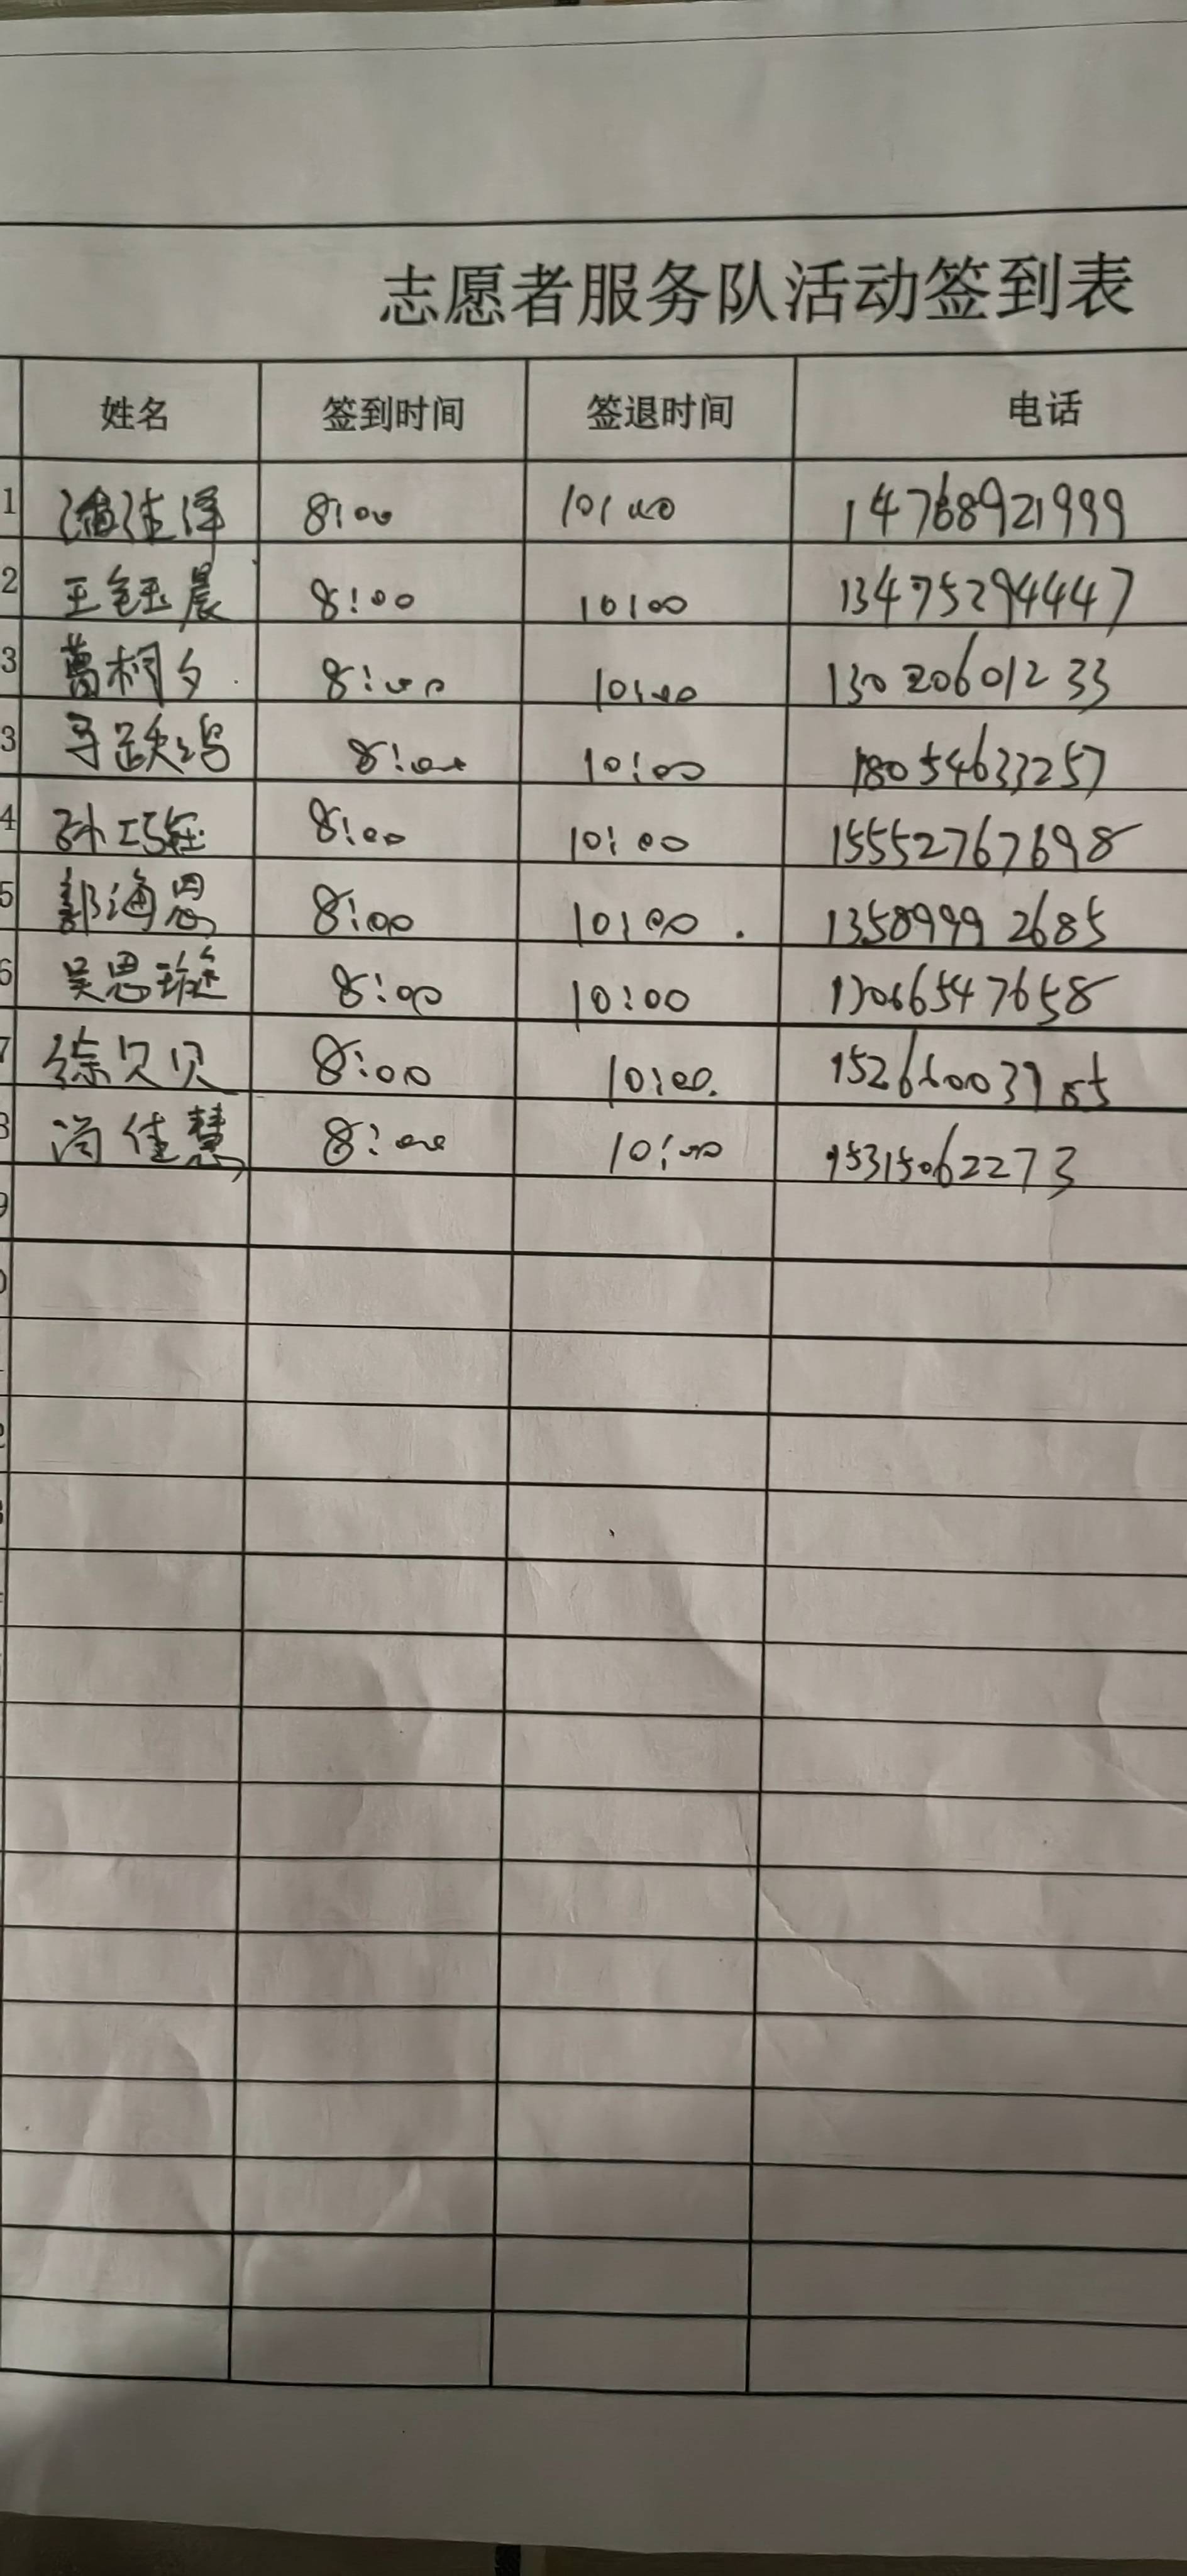 志愿者服务队活动签到表
姓名 签到时间 签退时间 电话
1 8:00 10:00 14768921999
2 王钰晨 8:00 10:00 13475294447
3 葛桐夕 8:00 10:00 13020601233
3 8:00 10:00 18054633257
4 孙巧钰 8:00 10:00 15552767698
5 郭海恩 8:00 10:00 13589992685
6 吴思璇 8:00 10:00 13066547658
7 徐贝贝 8:00 10:00
8 尚佳慧 8:00 10:00 15315062273
9